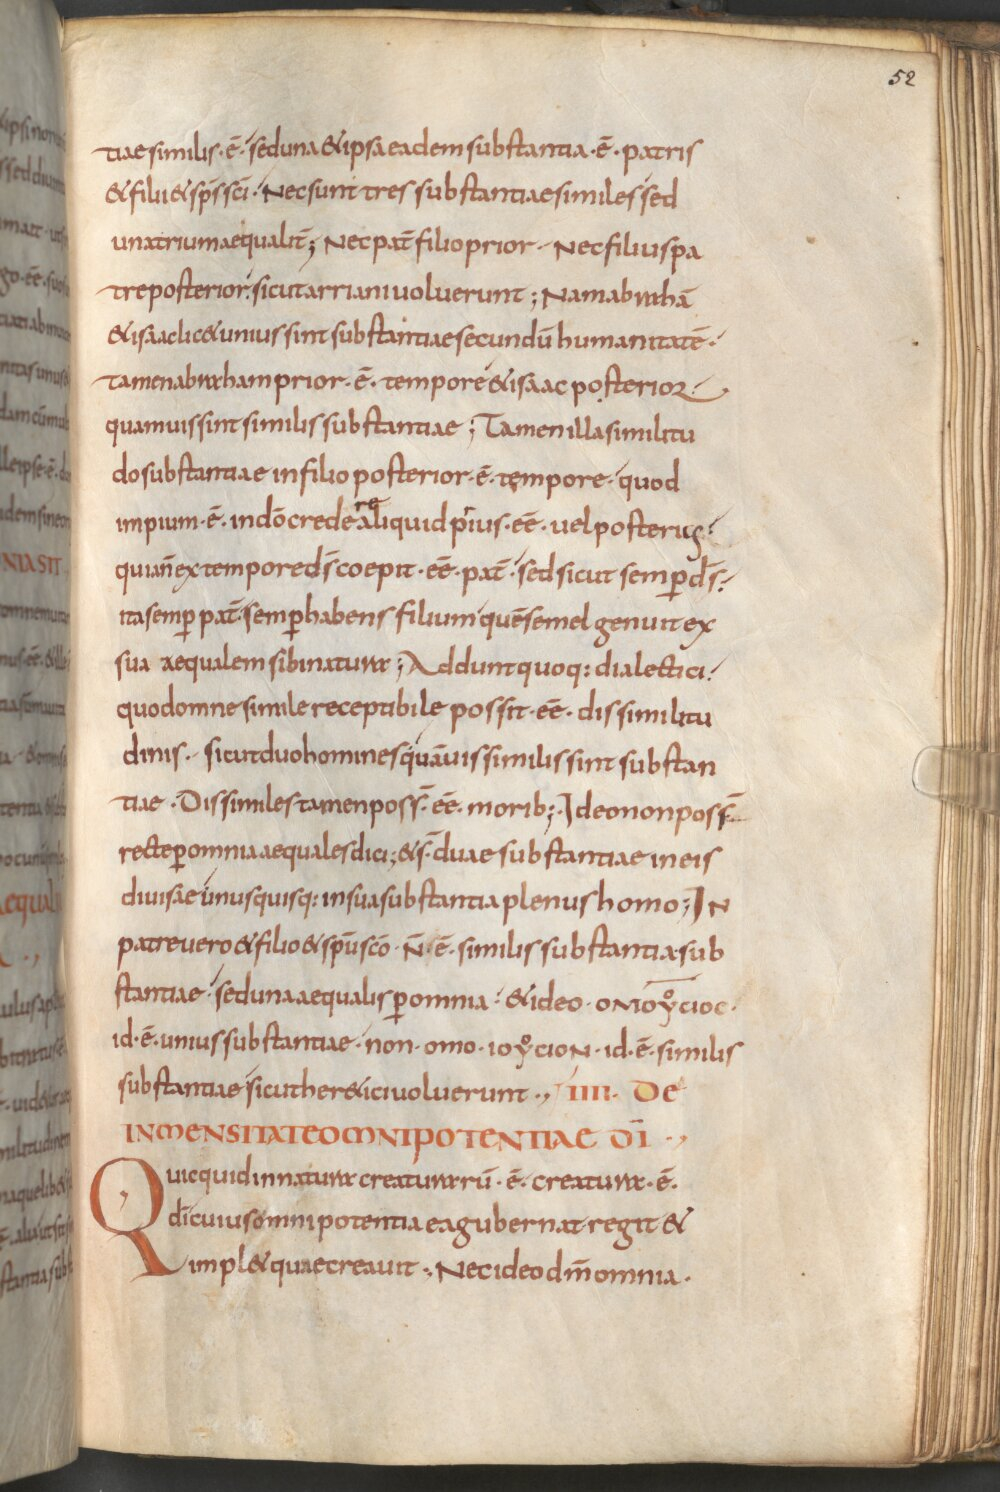 52
tiae similis · ē · sed una & ipsa eadem substantia · ē · patris
& filii & sp̄s sc̄i · Nec sunt tres substantiae similes sed
una trium aequalit̄; Nec pat̄ filio prior · Nec filius pa
tre posterior · sicut arriani voluerunt; Nam abrahā
& isaac lic& unius sint substantiae secundū humanitatē ·
Tamen abraham prior · ē · tempore & isaac posterior ·
quamuis sint similis substantiae; Tamen illa similitu
do substantiae in filio posterior · ē · tempore · quod
impium · ē · in dō credere aliquid prius · eē · uel posterius ·
quian̄ ex tempore d̄s coepit · eē · pat̄ · sed sicut semp d̄s ·
ita semp pat̄ · semp habens filium quē semel genuit ex
sua aequalem sibi natura; Addunt quoq: dialectici ·
quod omne simile receptibile possit · eē · dissimilitu
dinis · sicut duo homines quāuis similis sint substan
tiae · Dissimiles tamen poss̄ · eē · morib; · Ideo non poss̄
recte p omnia aequales dici; & s̄ duae substantiae in eis
diuisae unusquisq: in sua substantia plenus homo; In
patre uero & filio & sp̄u sc̄o · N̄ · ē · similis substantia sub
stantiae · sed una aequalis p omnia · & ideo · oMoy̌cioc ·
id · ē · unius substantiae · non · omo · ioy̌cioN · id · ē · similis
substantiae sicut her&ici uoluerunt · , IIII · De
INMENSITATE OMNIPOTENTIAE D̄I · ,
Quicquid in natura creaturarū · ē · creatura · ē ·
d̄i cuius omnipotentia ea gubernat regit &
impl& quae creauit · , Nec ideo dm̄ omnia ·